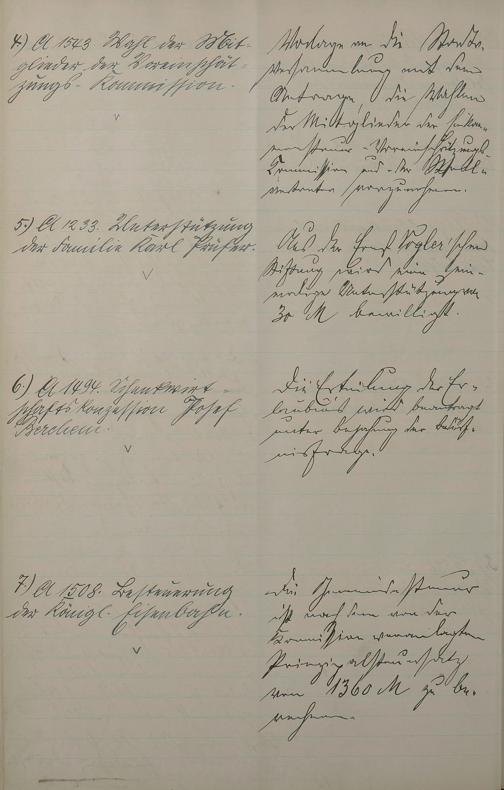 4) A 1543 Wahl der Mit-
glieder der Voreinschät-
zungs-Kommission.
Vorlage an die Stadtv.
Versammlung mit dem
Antrage, die Wahlen
der Mitglieder der Einkom-
mensteuer-Voreinschätzungs-
Kommission und der Stell-
vertreter vorzunehmen.
5.) A 1233. Unterstützung
der Familie Karl Prüfer.
Aus der Ernst Vogler'schen
Stiftung wird eine ein-
malige Unterstützung von
30 M bewilligt.
6.) A 1494. Schankwirt-
schaftskonzession Josef
Berchem.
Die Erteilung der Er-
laubnis wird beantragt
unter Bejahung der Bedürf-
nisfrage.
7.) A 1508. Besteuerung
der Königl. Eisenbahn.
Die Gemeindesteuer
ist nach dem von der
Kommission veranlagten
Prinzipalsteuersatz
von 1360 M zu be-
rechnen.